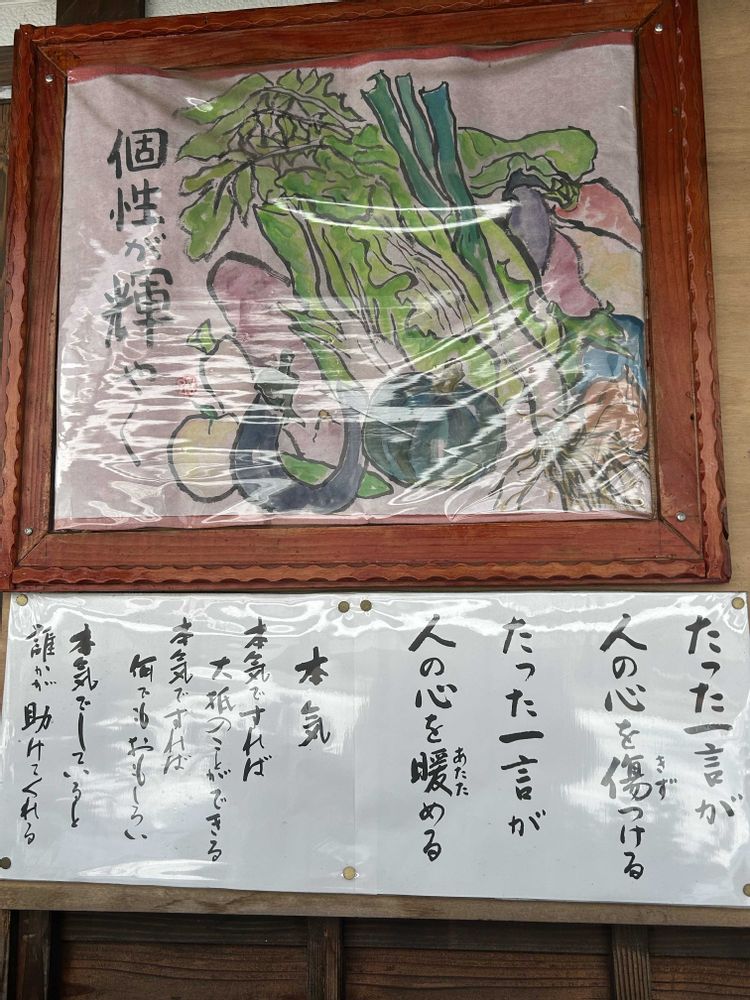 個性が輝やく
たった一言が
人の心を傷つける
きず
たった一言が
人の心を暖める
あたた
本気
本気ですれば
大抵のことができる
本気ですれば
何でもおもしろい
本気でしていると
誰かが助けてくれる